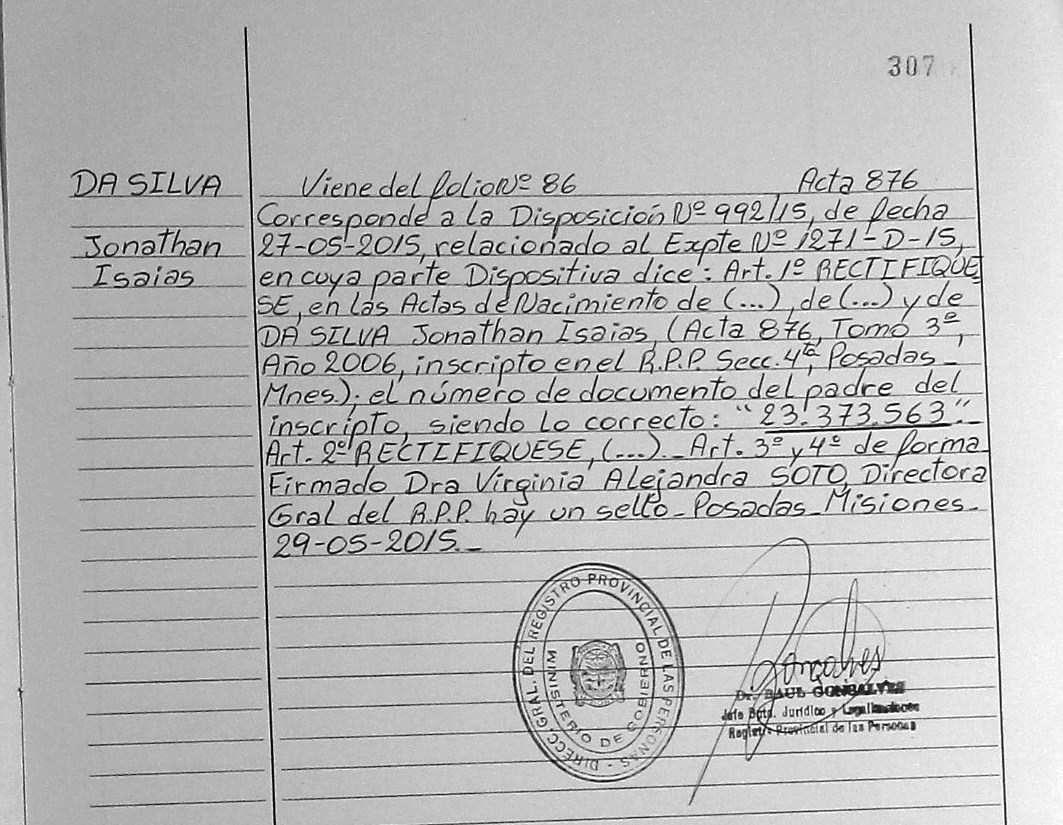 307
DA SILVA
Jonathan
Isaias
Viene del folio Nº 86 Acta 876
Corresponde a la Disposición Nº 992/15, de fecha
27-05-2015, relacionado al Expte Nº 1271-D-15,
en cuya parte Dispositiva dice: Art. 1º RECTIFIQUE
SE, en las Actas de Nacimiento de (...), de (...) y de
DA SILVA Jonathan Isaias, (Acta 876, Tomo 3º,
Año 2006, inscripto en el R.P.P. Secc. 4ta, Posadas_
Mnes.); el número de documento del padre del
inscripto, siendo lo correcto: "23.373.563".
Art. 2º RECTIFIQUESE, (...)._ Art. 3º y 4º de forma
Firmado Dra Virginia Alejandra SOTO, Directora
Gral del R.P.P. hay un sello_Posadas_Misiones_
29-05-2015._
DIRECC. GRAL. DEL REGISTRO PROVINCIAL DE LAS PERSONAS -
MINISTERIO DE GOBIERNO
Gonçalves
Dr. RAUL GONSALVES
Jefe Dpto. Jurídico y Legalizaciones
Registro Provincial de las Personas